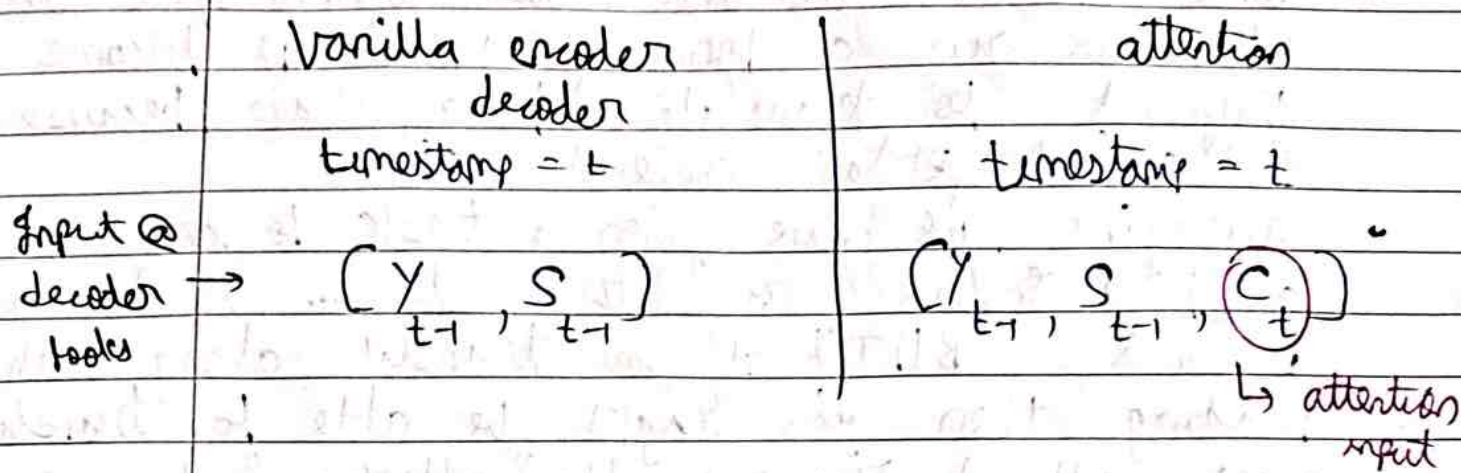 Vanilla encoder
decoder
timestamp = t
attention
timestamp = t
Input @
decoder →
looks
[y t-1 , S t-1]
[y t-1 , S t-1 , C t]
↳ attention
input